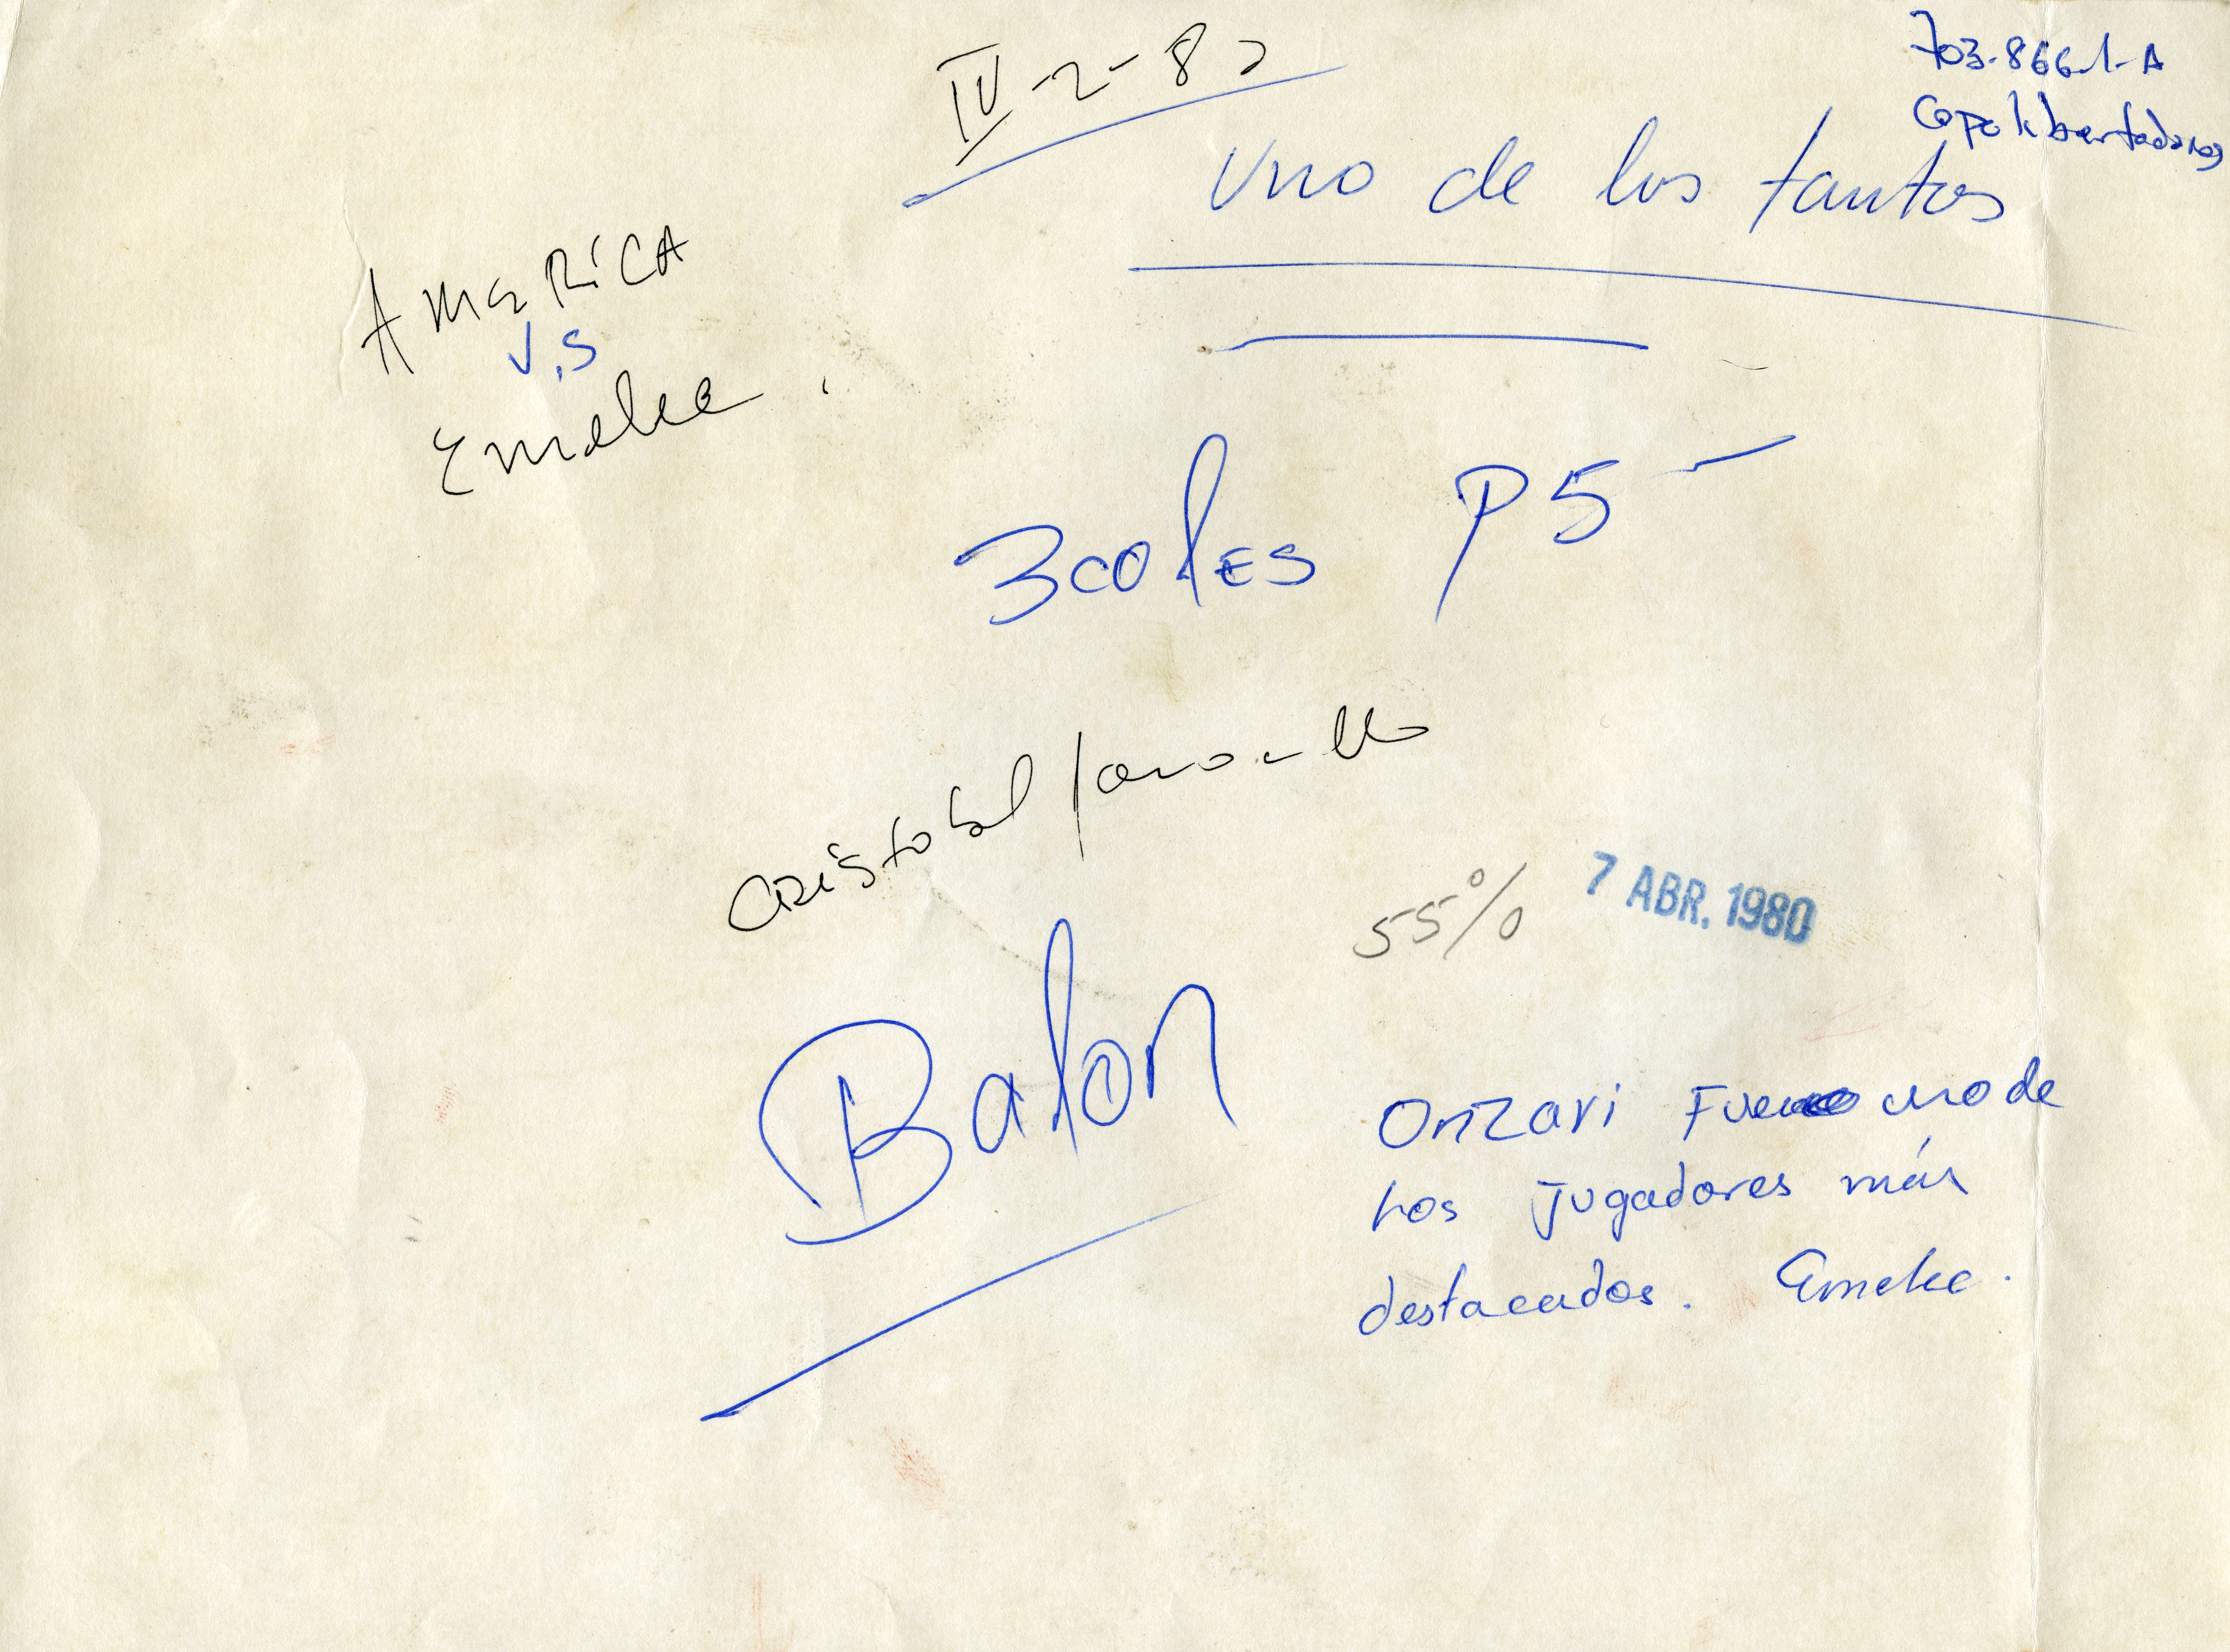 703-866-1-A
Copa libertadores
IV-2-80
Uno de los tantos
AMeRiCA
V.S
Emelec
3coles P5-
CRistobal Jaramillo
55%
7 ABR. 1980
Balon
Onzari Fue uno de
Los Jugadores más
destacados. Emelec.